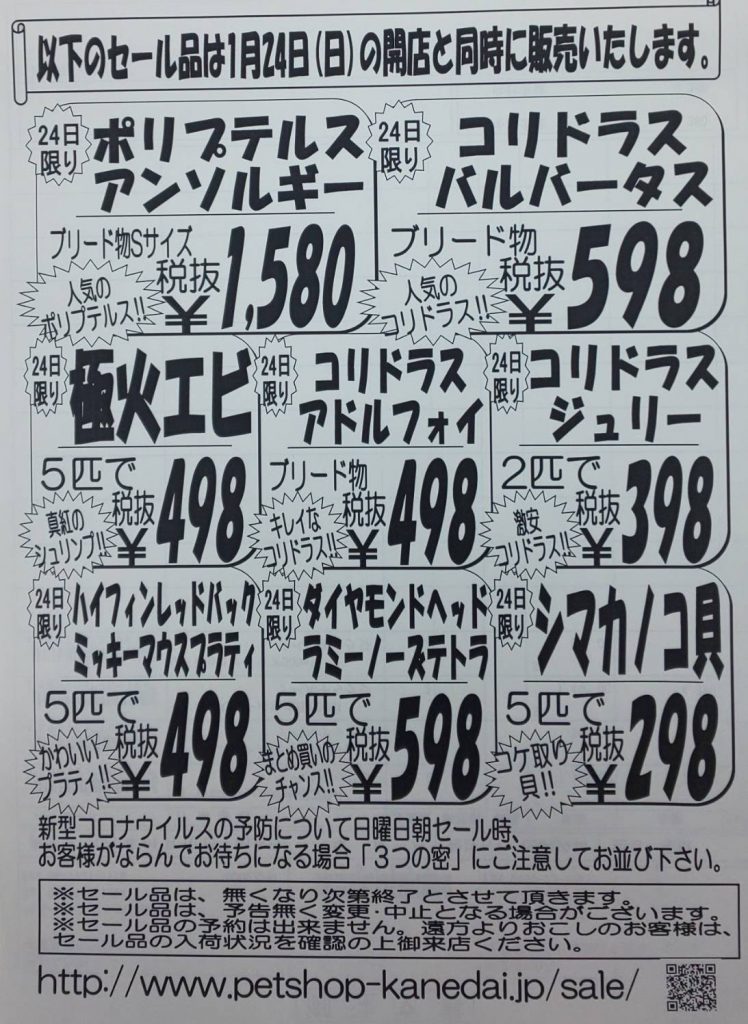 以下のセール品は1月24日(日)の開店と同時に販売いたします。
24日
限り
ポリプテルス
アンソルギー
ブリード物Sサイズ
人気の
ポリプテルス!!
税抜
¥1,580
24日
限り
コリドラス
バルバータス
ブリード物
人気の
コリドラス!!
税抜
¥598
24日
限り
極火エビ
5匹で
真紅の
シュリンプ!!
税抜
¥498
24日
限り
コリドラス
アドルフォイ
ブリード物
キレイな
コリドラス!!
税抜
¥498
24日
限り
コリドラス
ジュリー
2匹で
激安
コリドラス!!
税抜
¥398
24日
限り
ハイフィンレッドバック
ミッキーマウスプラティ
5匹で
かわいい
プラティ!!
税抜
¥498
24日
限り
ダイヤモンドヘッド
ラミーノーズテトラ
5匹で
まとめ買いの
チャンス!!
税抜
¥598
24日
限り
シマカノコ貝
5匹で
コケ取り
貝!!
税抜
¥298
新型コロナウイルスの予防について日曜日朝セール時、
お客様がならんでお待ちになる場合「3つの密」にご注意してお並び下さい。
※セール品は、無くなり次第終了とさせて頂きます。
※セール品は、予告無く変更・中止となる場合がございます。
※セール品の予約は出来ません。遠方よりおこしのお客様は、
セール品の入荷状況を確認の上御来店ください。
http://www.petshop-kanedai.jp/sale/